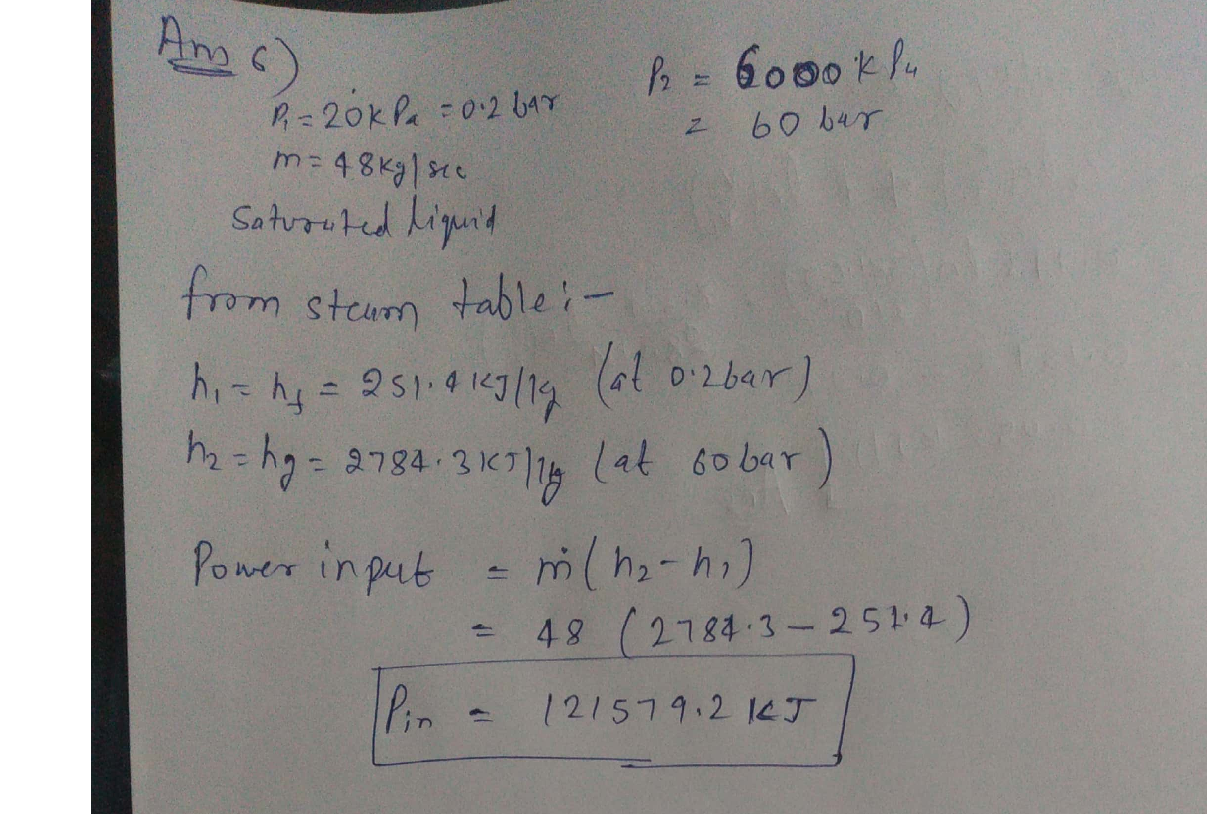 Ans 6)
P₁ = 20 kPa = 0.2 bar
P₂ = 6000 kPa
= 60 bar
m = 48 kg/sec
Saturated liquid
from steam table :-
h₁ = hf = 251.4 KJ/kg (at 0.2 bar)
h₂ = hg = 2784.3 KJ/kg (at 60 bar)
Power input = ṁ(h₂ - h₁)
= 48 (2784.3 - 251.4)
Pin = 121579.2 KJ